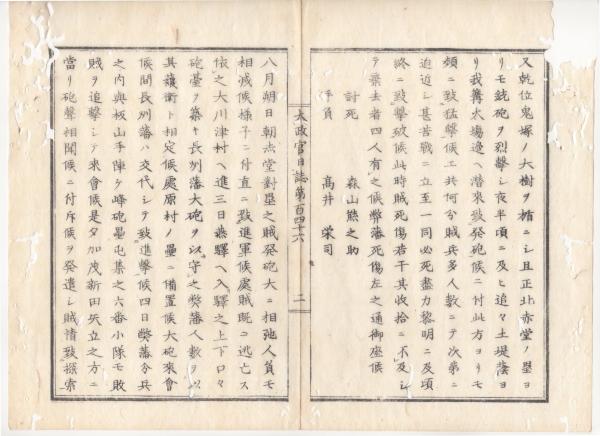 又乾位鬼塚ノ大樹ヲ楯ニシ且正北赤堂ノ塁ヨ
リモ銃砲ヲ烈撃シ夜半頃ニ及ヒ追々土堤蔭ヨ
リ我篝火場邊ヘ潜來致發砲候ニ付此方ヨリモ
頻ニ致猛撃候ヱ共何分賊兵多人數ニテ次第ニ
迫迫シ甚苦戰ニ立至一同必死盡力黎明ニ及頃
終ニ致撃破候此時賊死傷若干其收拾ニ不及シ
テ棄去者四人有之候弊藩死傷左之通御座候
討死 森山熊之助
手負 高井榮司
太政官日誌第百四十六 二
八月朔日朝赤堂對塁之賊發砲大ニ相弛人員モ
相減候様子ニ付直ニ致進軍候處賊既ニ逃亡ス
依之大川津村ヘ進三日燕驛ヘ入驛之上下口々
砲臺ヲ築キ長州藩大砲ヲ以守之弊藩人數ヲ以
其護衛ト相定候處原村ノ塁ニ備置候大砲來會
候間長州藩ハ交代シテ致進撃候四日弊藩分兵
之内與板山手陣ケ峰砲塁屯集之六番小隊モ敗
賊ヲ追撃シテ來會候是夕加茂新田矢立之方ニ
當リ砲聲相聞候ニ付斥候ヲ發遣シ賊情致探索